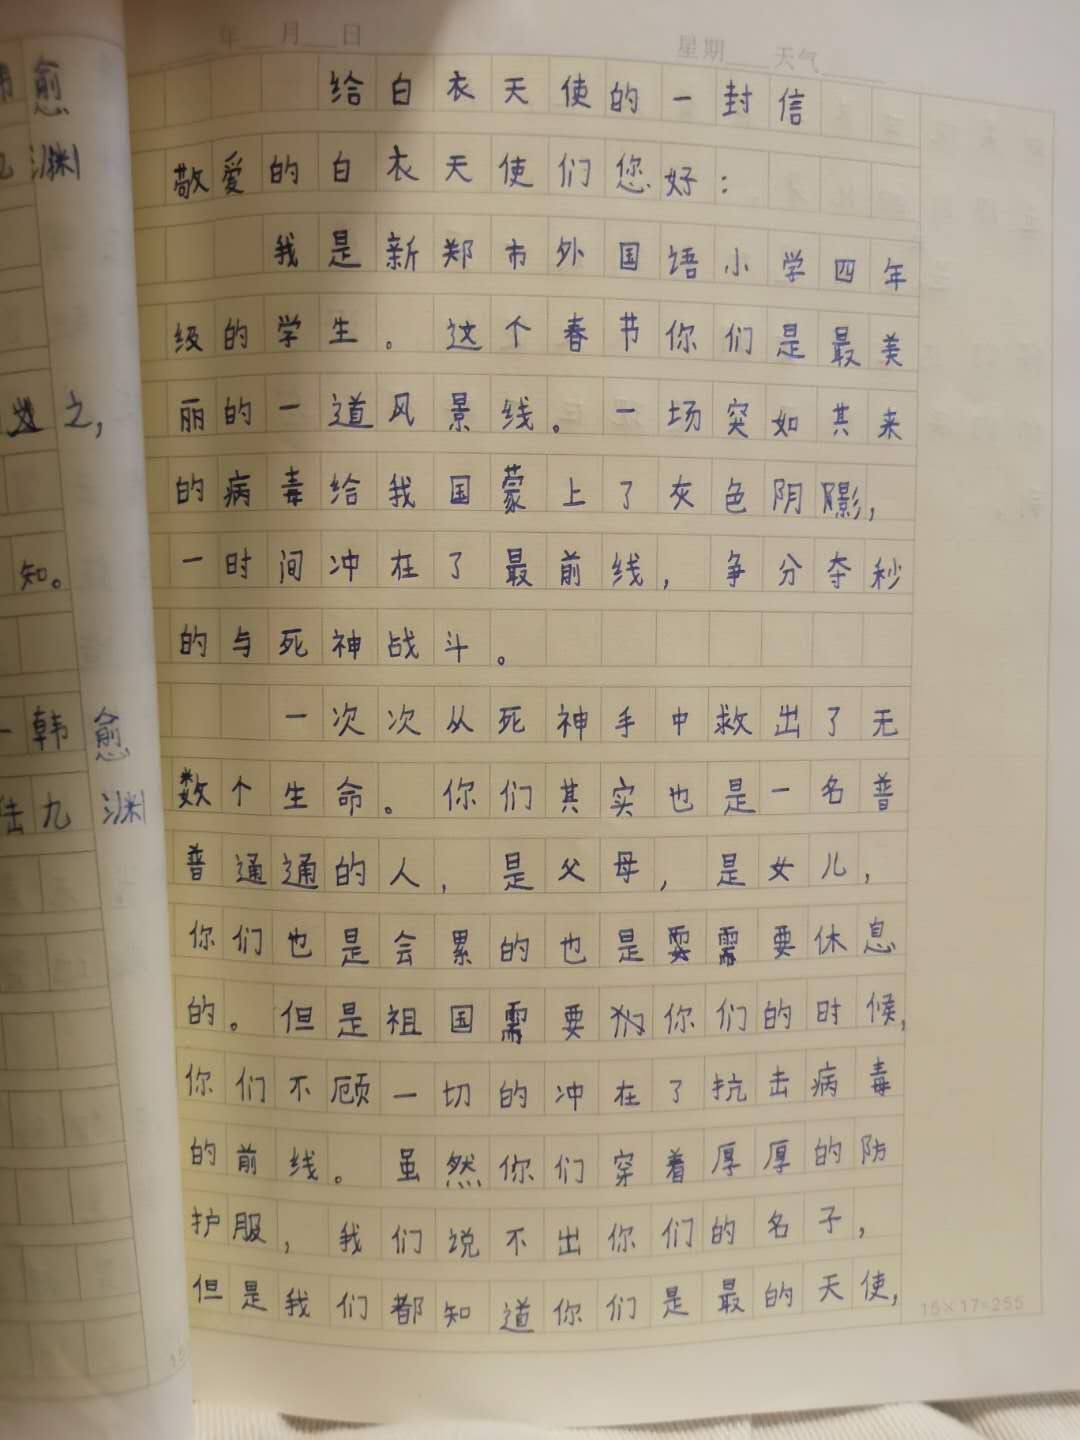 年 月 日
星期 天气
给白衣天使的一封信
敬爱的白衣天使们您好：
我是新郑市外国语小学四年
级的学生。这个春节你们是最美
丽的一道风景线。一场突如其来
的病毒给我国蒙上了灰色阴影，
一时间冲在了最前线，争分夺秒
的与死神战斗。
一次次从死神手中救出了无
数个生命。你们其实也是一名普
普通通的人，是父母，是女儿，
你们也是会累的也是需要休息
的。但是祖国需要你们的时候，
你们不顾一切的冲在了抗击病毒
的前线。虽然你们穿着厚厚的防
护服，我们说不出你们的名子，
但是我们都知道你们是最的天使，
15×17=255
愈
九渊
之，
知。
一韩愈
陆九渊